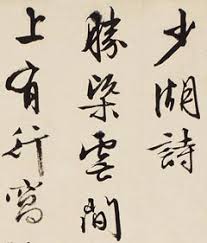 少湖詩
勝雲間
上有行窩